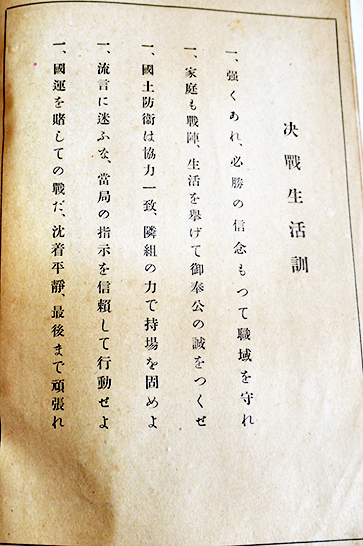 決戰生活訓
一、强くあれ、必勝の信念もつて職域を守れ
一、家庭も戰陣、生活を擧げて御奉公の誠をつくせ
一、國土防衞は協力一致、隣組の力で持場を固めよ
一、流言に迷ふな、當局の指示を信賴して行動せよ
一、國運を賭しての戰だ、沈着平靜、最後まで頑張れ